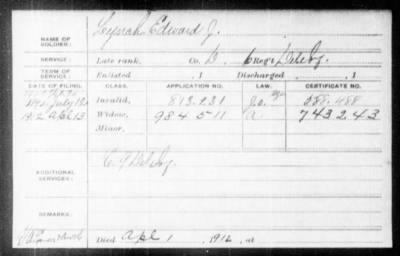 NAME OF SOLDIER: Edward J.
SERVICE: Late rank, Co. B, 6 Reg't Del. Inf.
TERM OF SERVICE: Enlisted , 1 Discharged , 1
DATE OF FILING. CLASS. APPLICATION NO. LAW. CERTIFICATE NO.
July 12 Invalid, 813.231 588.488
1912 Apl 13 Widow, 984511 a. 743243
Minor,
ADDITIONAL SERVICES: Del. Inf.
REMARKS:
Died Apl 1, 1912, at